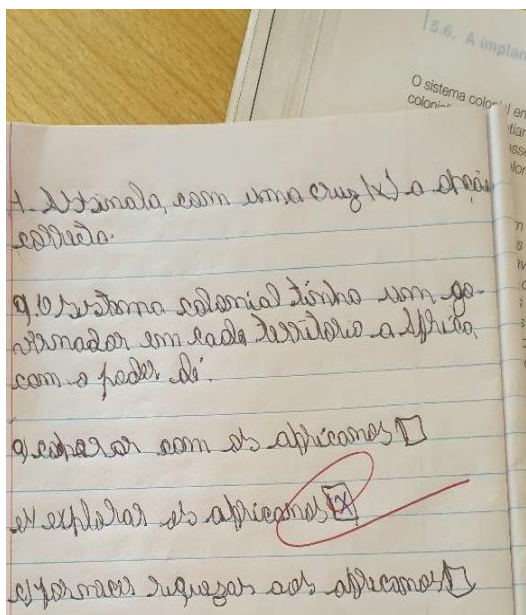 5.6. A implan
O sistema colonial en
coloni
1. Assinala, com uma cruz (x) a opção
correcta.
9. O sistema colonial tinha um go-
vernador em cada território a África,
com o poder de:
a) coperar com os africanos
b) explorar os africanos X
c) fornecer riquezas aos africanos